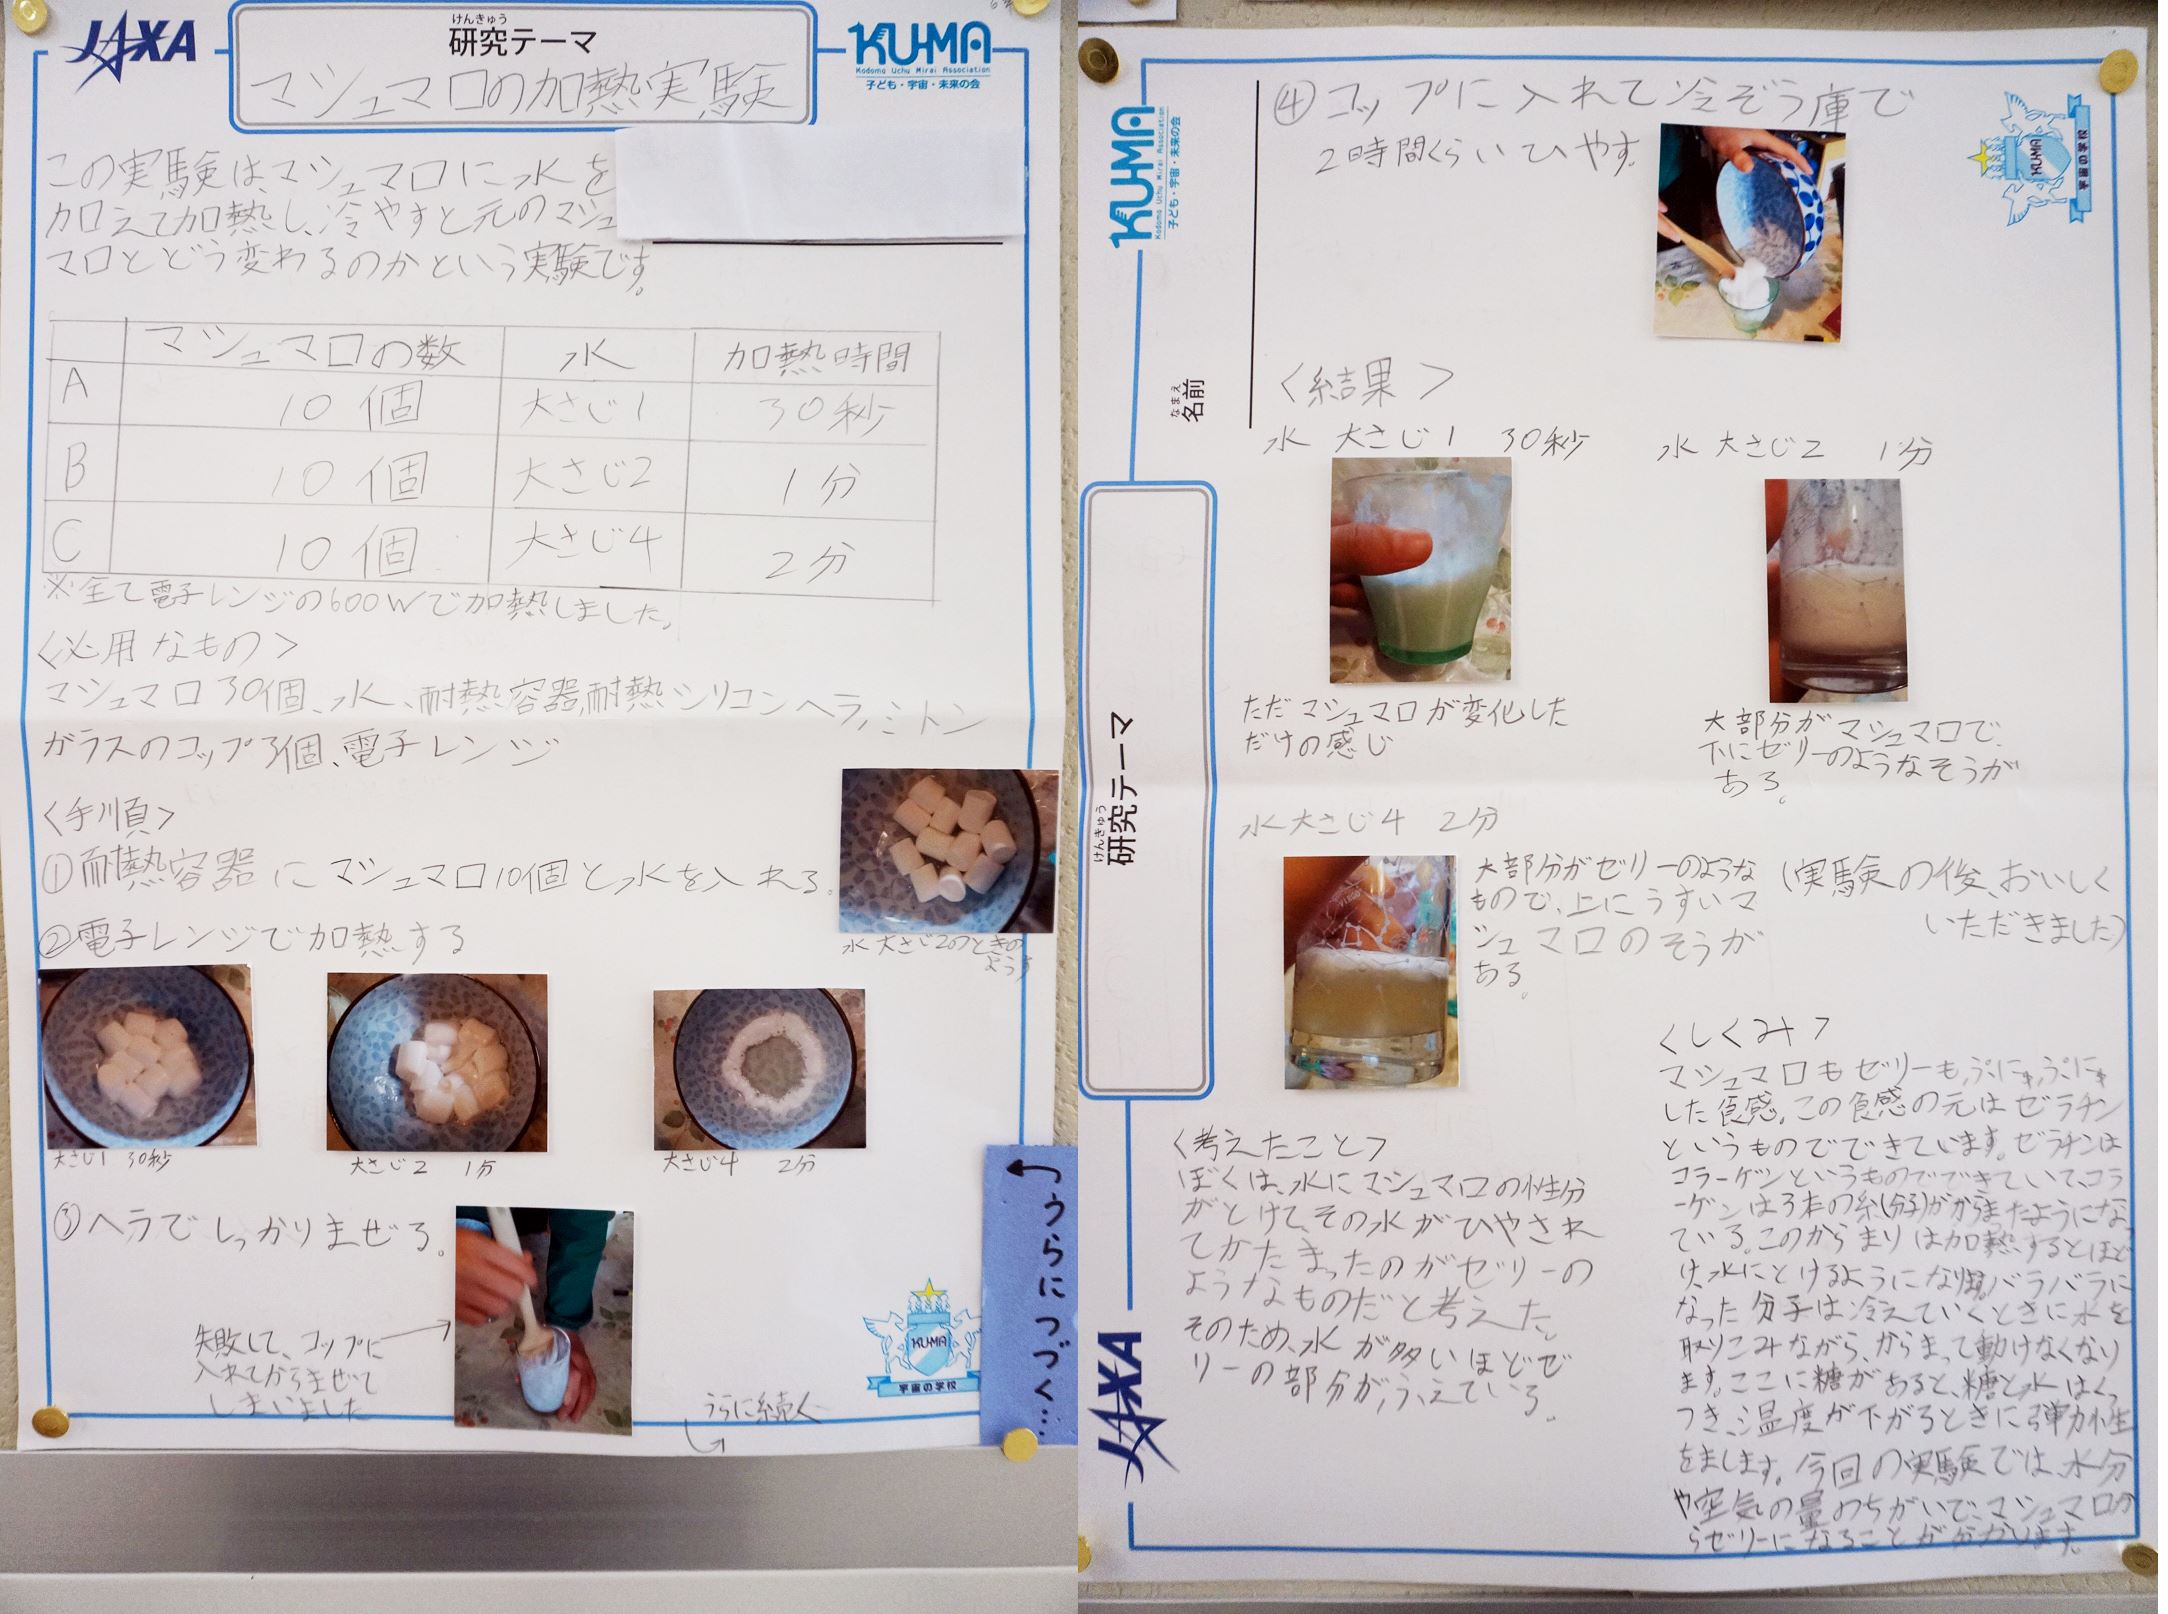 JAXA
けんきゅう
研究テーマ
マシュマロの加熱実験
KU-MA
Kodomo Uchu Mirai Association
子ども・宇宙・未来の会
この実験は、マシュマロに水を
加えて加熱し、冷やすと元のマシュ
マロとどう変わるのかという実験です。
マシュマロの数 水 加熱時間
A 10個 大さじ1 30秒
B 10個 大さじ2 1分
C 10個 大さじ4 2分
※全て電子レンジの600Wで加熱しました。
<必用なもの>
マシュマロ30個、水、耐熱容器、耐熱シリコンヘラ、ミトン
ガラスのコップ3個、電子レンジ
<手順>
①耐熱容器にマシュマロ10個と水を入れる。
水 大さじ2のときの
ようす
②電子レンジで加熱する
大さじ1 30秒
大さじ2 1分
大さじ4 2分
③ヘラでしっかりまぜる。
失敗して、コップに
入れてからまぜて
しまいました
うらに続く
KU-MA
宇宙の学校
うらにつづく…
④コップに入れて冷ぞう庫で
2時間くらいひやす。
KU-MA
Kodomo Uchu Mirai Association
子ども・宇宙・未来の会
KU-MA
宇宙の学校
なまえ
名前
けんきゅう
研究テーマ
JAXA
<結果>
水 大さじ1 30秒
水 大さじ2 1分
ただマシュマロが変化した
だけの感じ
大部分がマシュマロで、
下にゼリーのようなそうが
ある。
水 大さじ4 2分
大部分がゼリーのような
もので、上にうすいマ
シュマロのそうが
ある。
(実験の後、おいしく
いただきました)
<考えたこと>
ぼくは、水にマシュマロの性分
がとけて、その水がひやされ
てかたまったのがゼリーの
ようなものだと考えた。
そのため、水が多いほどゼ
リーの部分が、ふえている。
<しくみ>
マシュマロもゼリーも、ぷにゅ、ぷにゅ
した食感。この食感の元はゼラチン
というものでできています。ゼラチンは
コラーゲンというものでできていて、コラ
ーゲンは3本の糸(分子)がからまたようになっ
ている。このからまりは加熱するとほど
け、水にとけるようになり バラバラに
なった分子は冷えていくときに水を
取りこみながら、からまって動けなくなり
ます。ここに糖があると、糖と水はくっ
つき、温度が下がるときに弾力性
をまします。今回の実験では、水分
や空気の量のちがいで、マシュマロか
らゼリーになることが分かります。